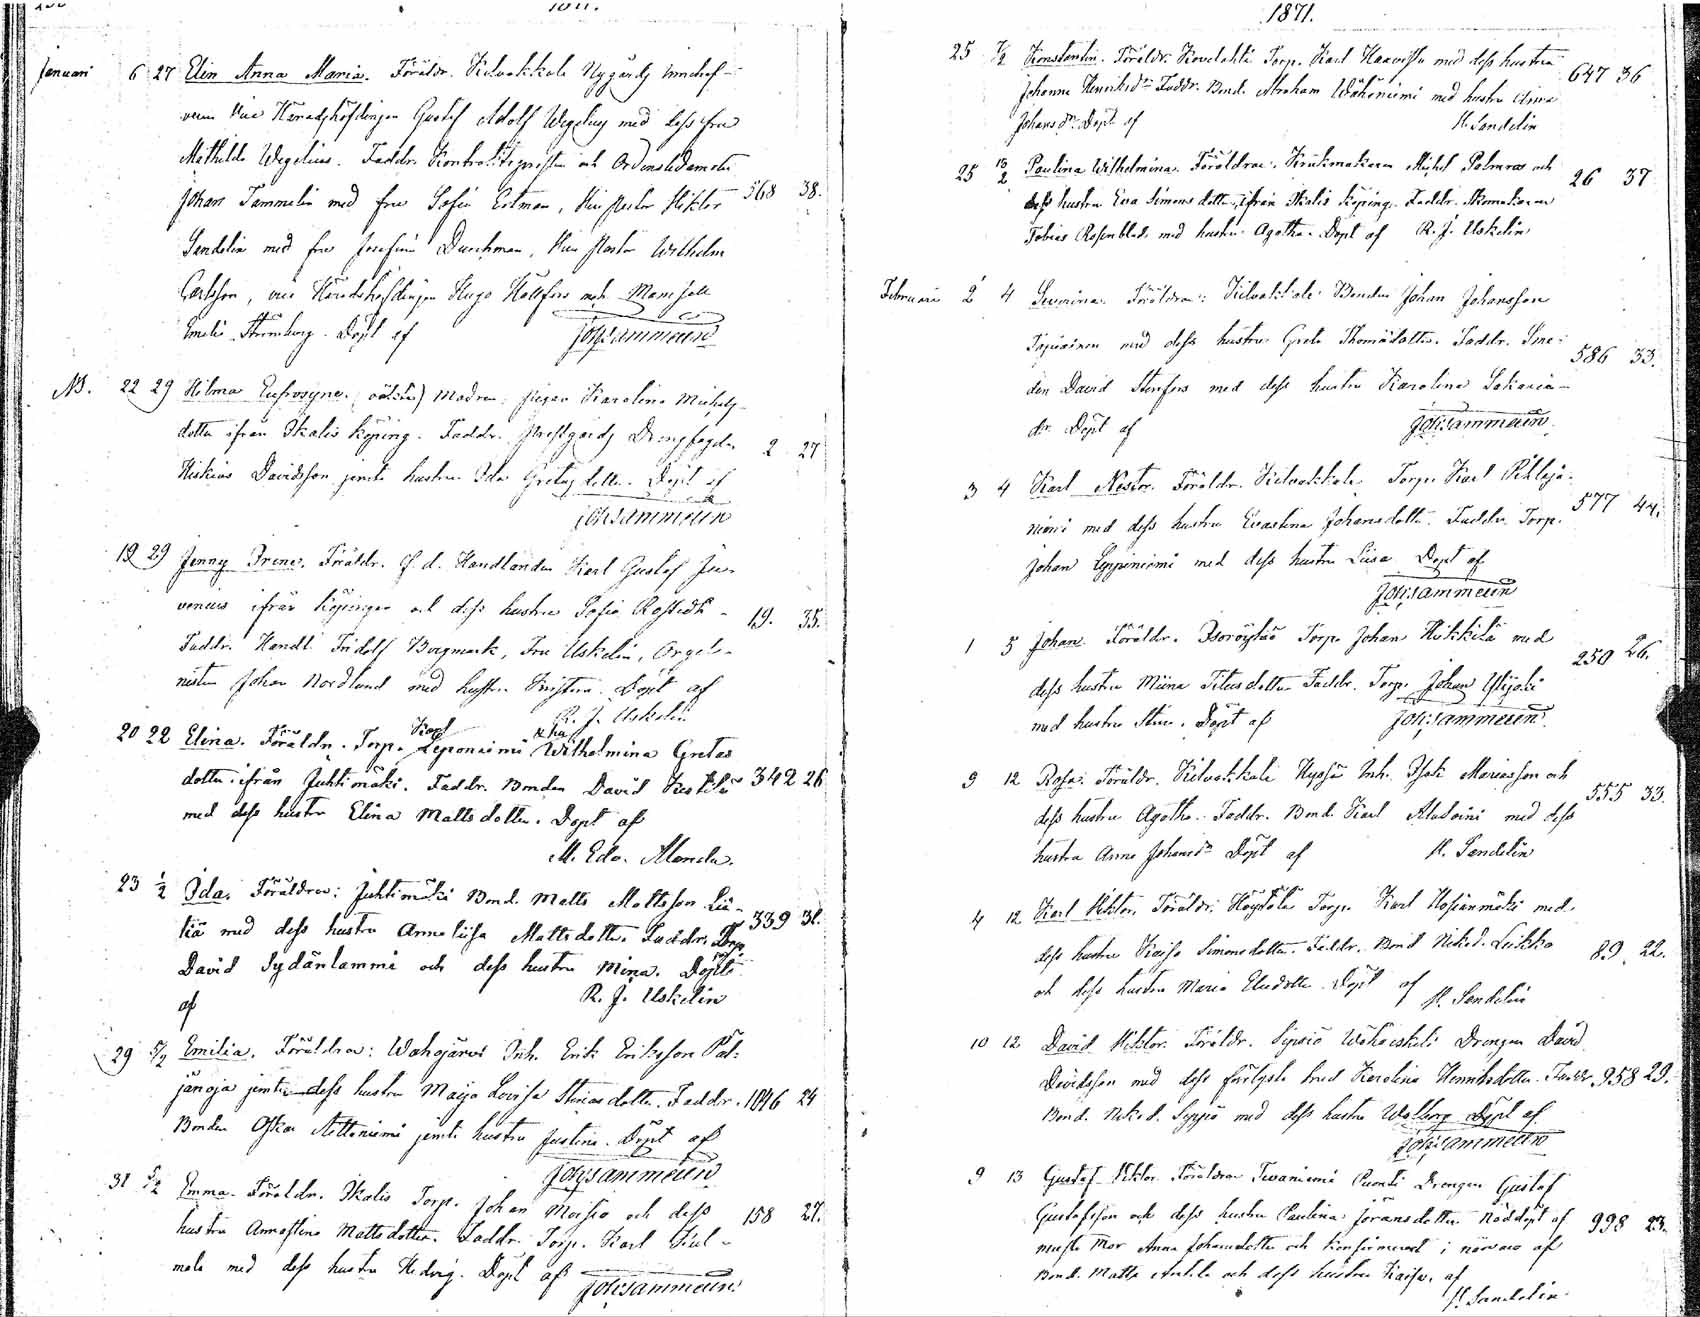 1871.
Januari 6 27 Elin Anna Maria. Föräldr. Kilvakkala Nygårds innehaf-
varen Vice Häradshöfdingen Gustaf Adolf Wegelius med dess fru
Mathilda Wegelius. Faddr. Kontraktsprosten och Ordensledamoten
Johan Tammelin med fru Sofia Ertman, Vice Pastor Hektor 568 38.
Sandelin med fru Josefina Durchman, Vice Pastor Wilhelm
Carlsson, vice Häradshöfdingen Hugo Hällfors och Mamsell
Emelie Strömborg. Döpt af Joh: Tammelin
NB. 22 29 Hilma Eufrosyne. (oäkta) Modren: pigan Karolina Michels-
dotter ifrån Ikalis köping. Faddr. Prestgårds Drengfogden 2 27
Hiskias Davidsson jemte hustru Ida Gretasdotter. Döpt af
Joh: Tammelin
19 29 Jenny Irene. Föräldr. F. d. Handlanden Karl Gustaf Ju-
venius ifrån köpingen och dess hustru Sofia Rostedt 19. 35.
Faddr. Handl. Fridolf Borgmark, Fru Uskelin, Orgel-
nisten Johan Nordlund med hustru Kristina. Döpt af
R. J. Uskelin
20 22 Elina. Föräldr. Torp. Karl Leponiemi x ha Wilhelmina Gretas
dotter ifrån Juhtimäki. Faddr. Bonden David Kestilä 342 26
med dess hustru Elina Mattsdotter. Döpt af
M. Edv. Manda.
23 1/2 Ida. Föräldrar: Juhtimäki Bond. Matts Mattsson Lii-
tiä med dess hustru Annaliisa Mattsdotter. Faddr. Torp. 339 31.
David Sydänlammi och dess hustru Mina. Döpt
af R. J. Uskelin
29 5/2 Emilia. Föräldrar: Wahojärvi Inh. Erik Eriksson Pal-
janoja jemte dess hustru Maija Lovisa Steriasdotter. Faddr. 1046 24
Bonden Oskar Aittoniemi jemte hustru Justina. Döpt af
Joh: Tammelin
31 5/2 Emma. Föräldr. Ikalis Torp. Johan Moisio och dess
hustru Annastina Mattsdotter. Faddr. Torp. Karl Kul- 158 27.
mala med dess hustru Hedvig. Döpt af Joh: Tammelin
1871.
25 7/2 Konstantin. Föräldr. Kovelahti Torp. Karl Haavisto med dess hustru
Johanna Henriksdr. Faddr. Bond. Abraham Wäheniemi med hustru Anna 647 36
Johansdr. Döpt af H. Sandelin
25 13/2 Paulina Wilhelmina. Föräldrar: Krukmakaren Michel Palmroos och
dess hustru Eva Simonsdotter, ifrån Ikalis köping. Faddr. Skomakaren 26 37
Tobias Rosenblad med hustru Agatha. Döpt af R. J. Uskelin
Februari 2 4 Severina. Föräldrar: Kilvakkala Bonden Johan Johansson
Papiainen med dess hustru Greta Thomasdotter. Faddr. Sme- 586 33.
den David Stenfors med dess hustru Karolina Sakaria-
dr. Döpt af Joh: Tammelin
3 4 Karl Nestor. Föräldr. Kilvakkala Torp. Karl Pihlaja-
niemi med dess hustru Evastina Johansdotter. Faddr. Torp. 577 44.
Johan Leppiniemi med dess hustru Liisa. Döpt af
Joh: Tammelin
1 5 Johan. Föräldr. Isoröyhiö Torp. Johan Heikkilä med
dess hustru Miina Titusdotter. Faddr. Torp. Johan Ylijoki 250 26.
med hustru Stina. Döpt af Joh: Tammelin.
9 12 Rosa. Föräldr. Kilvakkala Hyssä Inh. Isak Mariasson och
dess hustru Agatha. Faddr. Bond. Karl Alasoini med dess 555 33.
hustru Anna Johansdr. Döpt af H. Sandelin
4 12 Karl Viktor. Föräldr. Höytölä Torp. Karl Hosianmäki med
dess hustru Kaisa Simonsdotter. Faddr. Bond. Niked. Leikko 89. 22.
och dess hustru Maria Eliedotter. Döpt af H. Sandelin
10 12 David Viktor. Föräldr. Sipsiö Wähäeskeli Drengen David
Davidsson med dess fästeqvinna Karolina Henriksdotter. Faddr. 958 29.
Bond. Niked. Seppä med dess hustru Walborg. Döpt af
Joh: Tammelin
9 13 Gustaf Viktor. Föräldrar Tevaniemi Puonti Drengen Gustaf
Gustafsson och dess hustru Paulina Göransdotter. Nöddöpt af 998 23.
Mor Anna Johansdotter och konfirmerat i närvaro af
Bond. Matts Anttila och dess hustru Kaisa, af
H. Sandelin